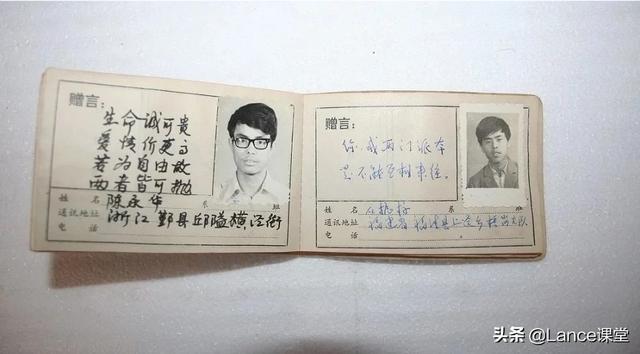 赠言：
生命诚可贵
爱情价更高
若为自由故
两者皆可抛
姓名 陈永华 系 班
通讯地址 浙江鄞县邱隘横泾街
电话
赠言：
你、我两门派本
是不能互相来往。
姓名 系 班
通讯地址 福建省福清县上迳乡
电话
头条 @Lance课堂